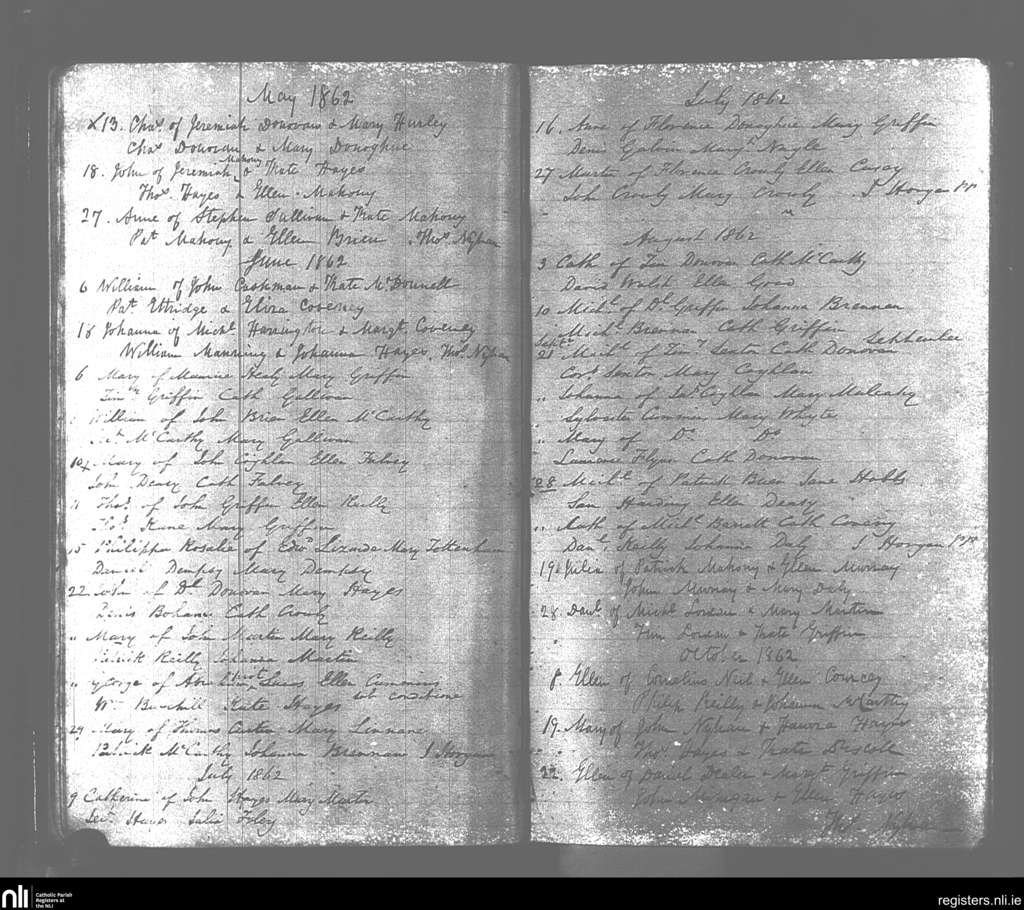 May 1862
x13. Chas of Jeremiah Donovan & Mary Hurley
Chas Donovan & Mary Donoghue
18. John of Jeremiah Mahony & Kate Hayes
Thos Hayes & Ellen Mahony
27. Anne of Stephen Sullivan & Kate Mahony
Pat Mahony & Ellen Brien. Thos Nyhan
June 1862
6 William of John Cashman & Kate McDonnell
Pat Ettridge & Eliza Coveney
18 Johanna of Michl Harrington & Margt Coveney
William Manning & Johanna Hayes. Thos Nyhan
6 Mary of Maurice Healy Mary Griffin
Timy Griffin Cath Gallivan
William of John Brien Ellen McCarthy
McCarthy Mary Gallivan
10 Mary of John Coghlan Ellen Falvey
John Deasy Cath Falvey
" Thos of John Griffin Ellen Reilly
Kune Mary Griffin
15 Philippa Rosalie of Edwd Mary Tottenham
Daniel Dempsy Mary Dempsy
22 John of Dl Donovan Mary Hayes
Denis Bohane Cath Crowly
" Mary of John Martin Mary Reilly
Patrick Reilly Johanna Martin
" George of Abraham Ellen Cummins
Wm Kate Hayes sub conditione
29 Mary of Thomas Mary Linnane
Patrick McCarthy Johanna Brennan J Horgan
July 1862
9 Catherine of John Hayes Mary Martin
Hayes Julia
July 1862
16. Anne of Florence Donoghue Mary Griffin
Denis Galvin Margt Nagle
27 Martin of Florence Crowly Ellen Casey
John Crowly Mary Crowly J Horgan PP
August 1862
3 Cath of Tim Donovan Cath McCarthy
David Walsh Ellen Good
10 Michl of Dl Griffin Johanna Brennan
Michl Brennan Cath Griffin
September
Sept 21 Michl of Timy Sexton Cath Donovan
Sexton Mary Coghlan
" Johanna of Coghlan Mary Mulcahy
Sylvester Mary Whyte
" Mary of Do Do
Laurence Flynn Cath Donovan
28 Michl of Patrick Brien Jane Hobbs
Harding Ellen Deasy
" Cath of Michl Barrett Cath
Danl Reilly Johanna Daly J Horgan PP
19 Julia of Patrick Mahony & Ellen Murray
John Murray & Mary Daly
28 Danl of Michl & Mary Martin
& Kate Griffin
October 1862
8. Ellen of Cornelius Neil & Ellen Courcey
Philip Reilly & Johanna McCarthy
19. Mary of John Nyhan & Hayes
Thos Hayes & Kate Driscoll
22. Ellen of Daniel & Margt Griffin
John & Ellen Hayes
Thos Nyhan
nli
Catholic Parish
Registers at
the NLI
registers.nli.ie